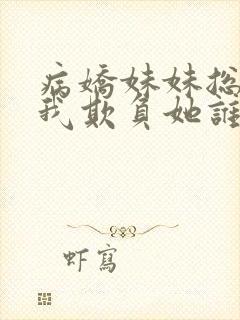 病嬌妹妹总
我欺負她誰
虾寫